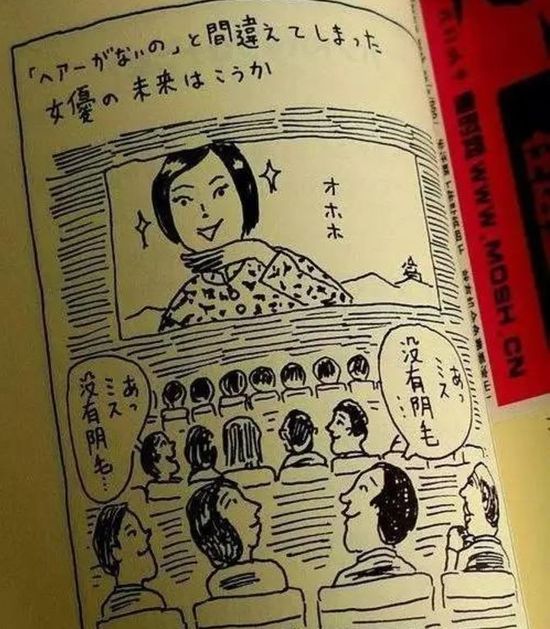 「ヘアーがないの」と間違えてしまった
女優の未来はこうか
オホホ
あっ
ミス
没有阴毛…
あっ
ミス
没有阴毛…
WWW.MOSH.CN